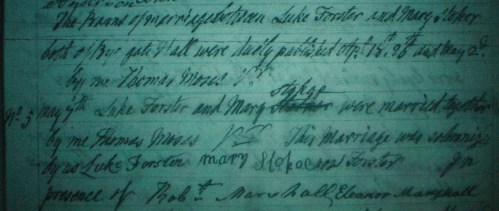 The Banns of marriage between Luke Forster and Mary
both of Bye gate Hall were duely published Apl. 18th. 25th and May 2d.
by me Thomas Moses
Stokoe
No. 3 May 7th Luke Forster and Mary were married together
by me Thomas Moses This Marriage was solemniz'd
by us Luke Forster mary Stokoe now Forster In
presence of Robt. Marshall, Eleanor Marshall